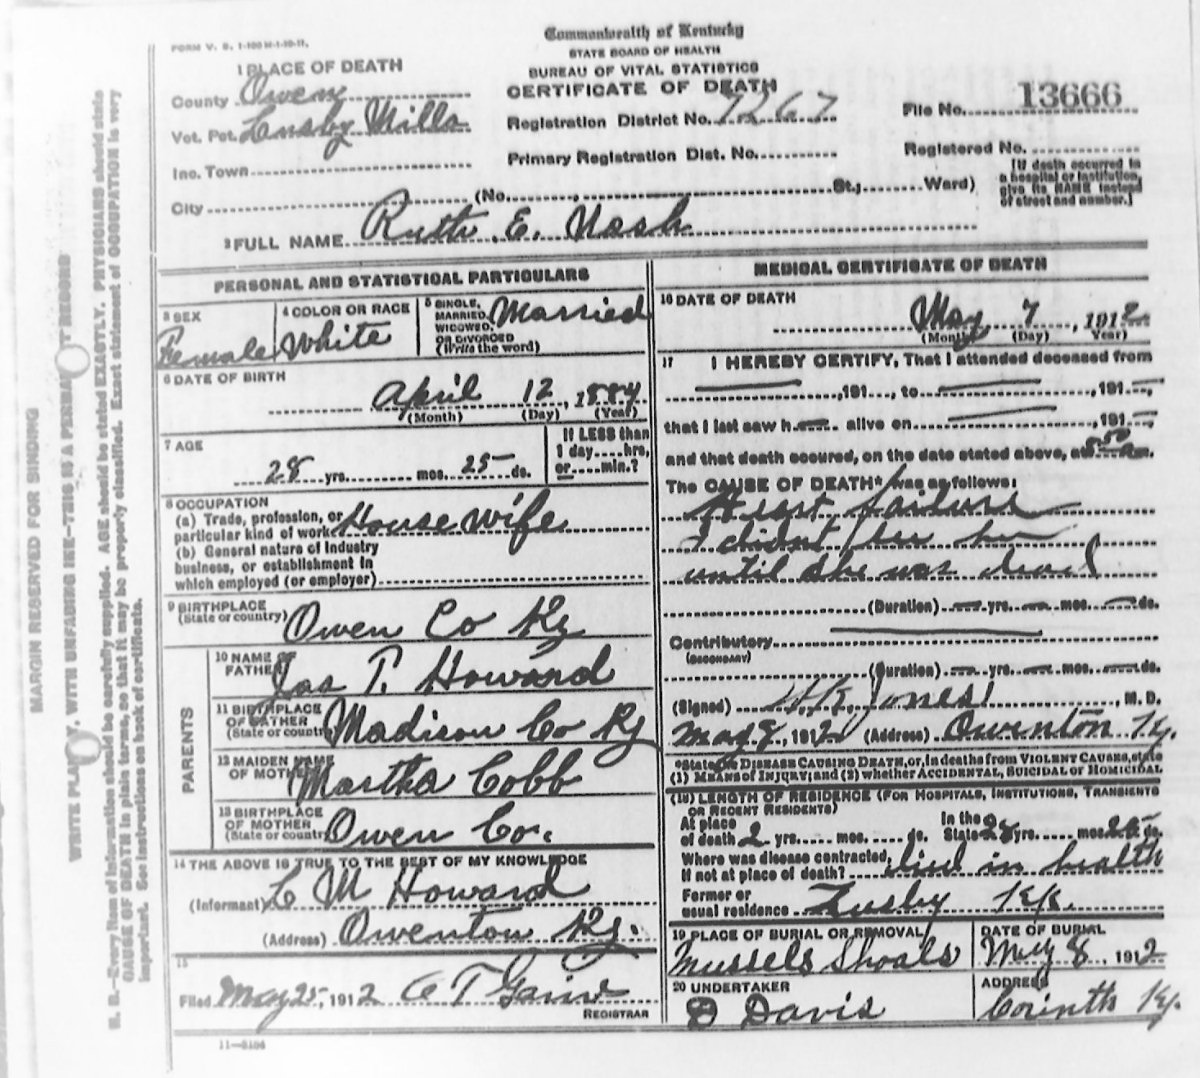 FORM V. S. 1-100 M-1-10-11.
Commonwealth of Kentucky
STATE BOARD OF HEALTH
BUREAU OF VITAL STATISTICS
CERTIFICATE OF DEATH
1 PLACE OF DEATH
County Owen
Vot. Pct. Lusby Mills
Inc. Town
City
Registration District No. 7267
Primary Registration Dist. No.
(No. St.; Ward)
File No. 13666
Registered No.
[If death occurred in
a hospital or institution,
give its NAME instead
of street and number.]
2 FULL NAME Ruth E. Nash
PERSONAL AND STATISTICAL PARTICULARS
3 SEX
Female
4 COLOR OR RACE
White
5 SINGLE,
MARRIED,
WIDOWED,
OR DIVORCED
(Write the word)
Married
6 DATE OF BIRTH
April 12, 1884
(Month) (Day) (Year)
7 AGE
28 yrs. mos. 25 ds.
If LESS than
1 day....hrs,
or....min.?
8 OCCUPATION
(a) Trade, profession, or
particular kind of work House wife
(b) General nature of Industry
business, or establishment in
which employed (or employer)
9 BIRTHPLACE
(State or country) Owen Co Ky
PARENTS
10 NAME OF
FATHER Jas T. Howard
11 BIRTHPLACE
OF FATHER
(State or country) Madison Co Ky
12 MAIDEN NAME
OF MOTHER Martha Cobb
13 BIRTHPLACE
OF MOTHER
(State or country) Owen Co.
14 THE ABOVE IS TRUE TO THE BEST OF MY KNOWLEDGE
(Informant) C M Howard
(Address) Owenton Ky.
15
Filed May 25, 1912
REGISTRAR
11—3156
MEDICAL CERTIFICATE OF DEATH
16 DATE OF DEATH
May 7, 1912
(Month) (Day) Year)
17 I HEREBY CERTIFY, That I attended deceased from
, 191 , to , 191 ,
that I last saw h alive on , 191 ,
and that death occured, on the date stated above, at m.
The CAUSE OF DEATH* was as follows:
Heart failure
I didnt see her
until she was dead
(Duration) yrs. mos. ds.
Contributory
(SECONDARY)
(Duration) yrs. mos. ds.
(Signed) Jones, M. D.
May 8, 1912 (Address) Owenton Ky.
*State the DISEASE CAUSING DEATH, or, in deaths from VIOLENT CAUSES, state
(1) MEANS OF INJURY; and (2) whether ACCIDENTAL, SUICIDAL or HOMICIDAL
(18) LENGTH OF RESIDENCE (FOR HOSPITALS, INSTITUTIONS, TRANSIENTS
OR RECENT RESIDENTS)
At place In the
of death 2 yrs. mos. ds. State 28 yrs. mos. 25 ds.
Where was disease contracted,
If not at place of death? in health
Former or
usual residence Lusby Ky.
19 PLACE OF BURIAL OR REMOVAL
Mussels Shoals
DATE OF BURIAL
May 8, 1912
20 UNDERTAKER
Davis
ADDRESS
Corinth Ky.
MARGIN RESERVED FOR BINDING
WRITE PLAINLY, WITH UNFADING INK—THIS IS A PERMANENT RECORD
N. B.—Every item of information should be carefully supplied. AGE should be stated EXACTLY. PHYSICIANS should state
CAUSE OF DEATH in plain terms, so that it may be properly classified. Exact statement of OCCUPATION is very
important. See instructions on back of certificate.